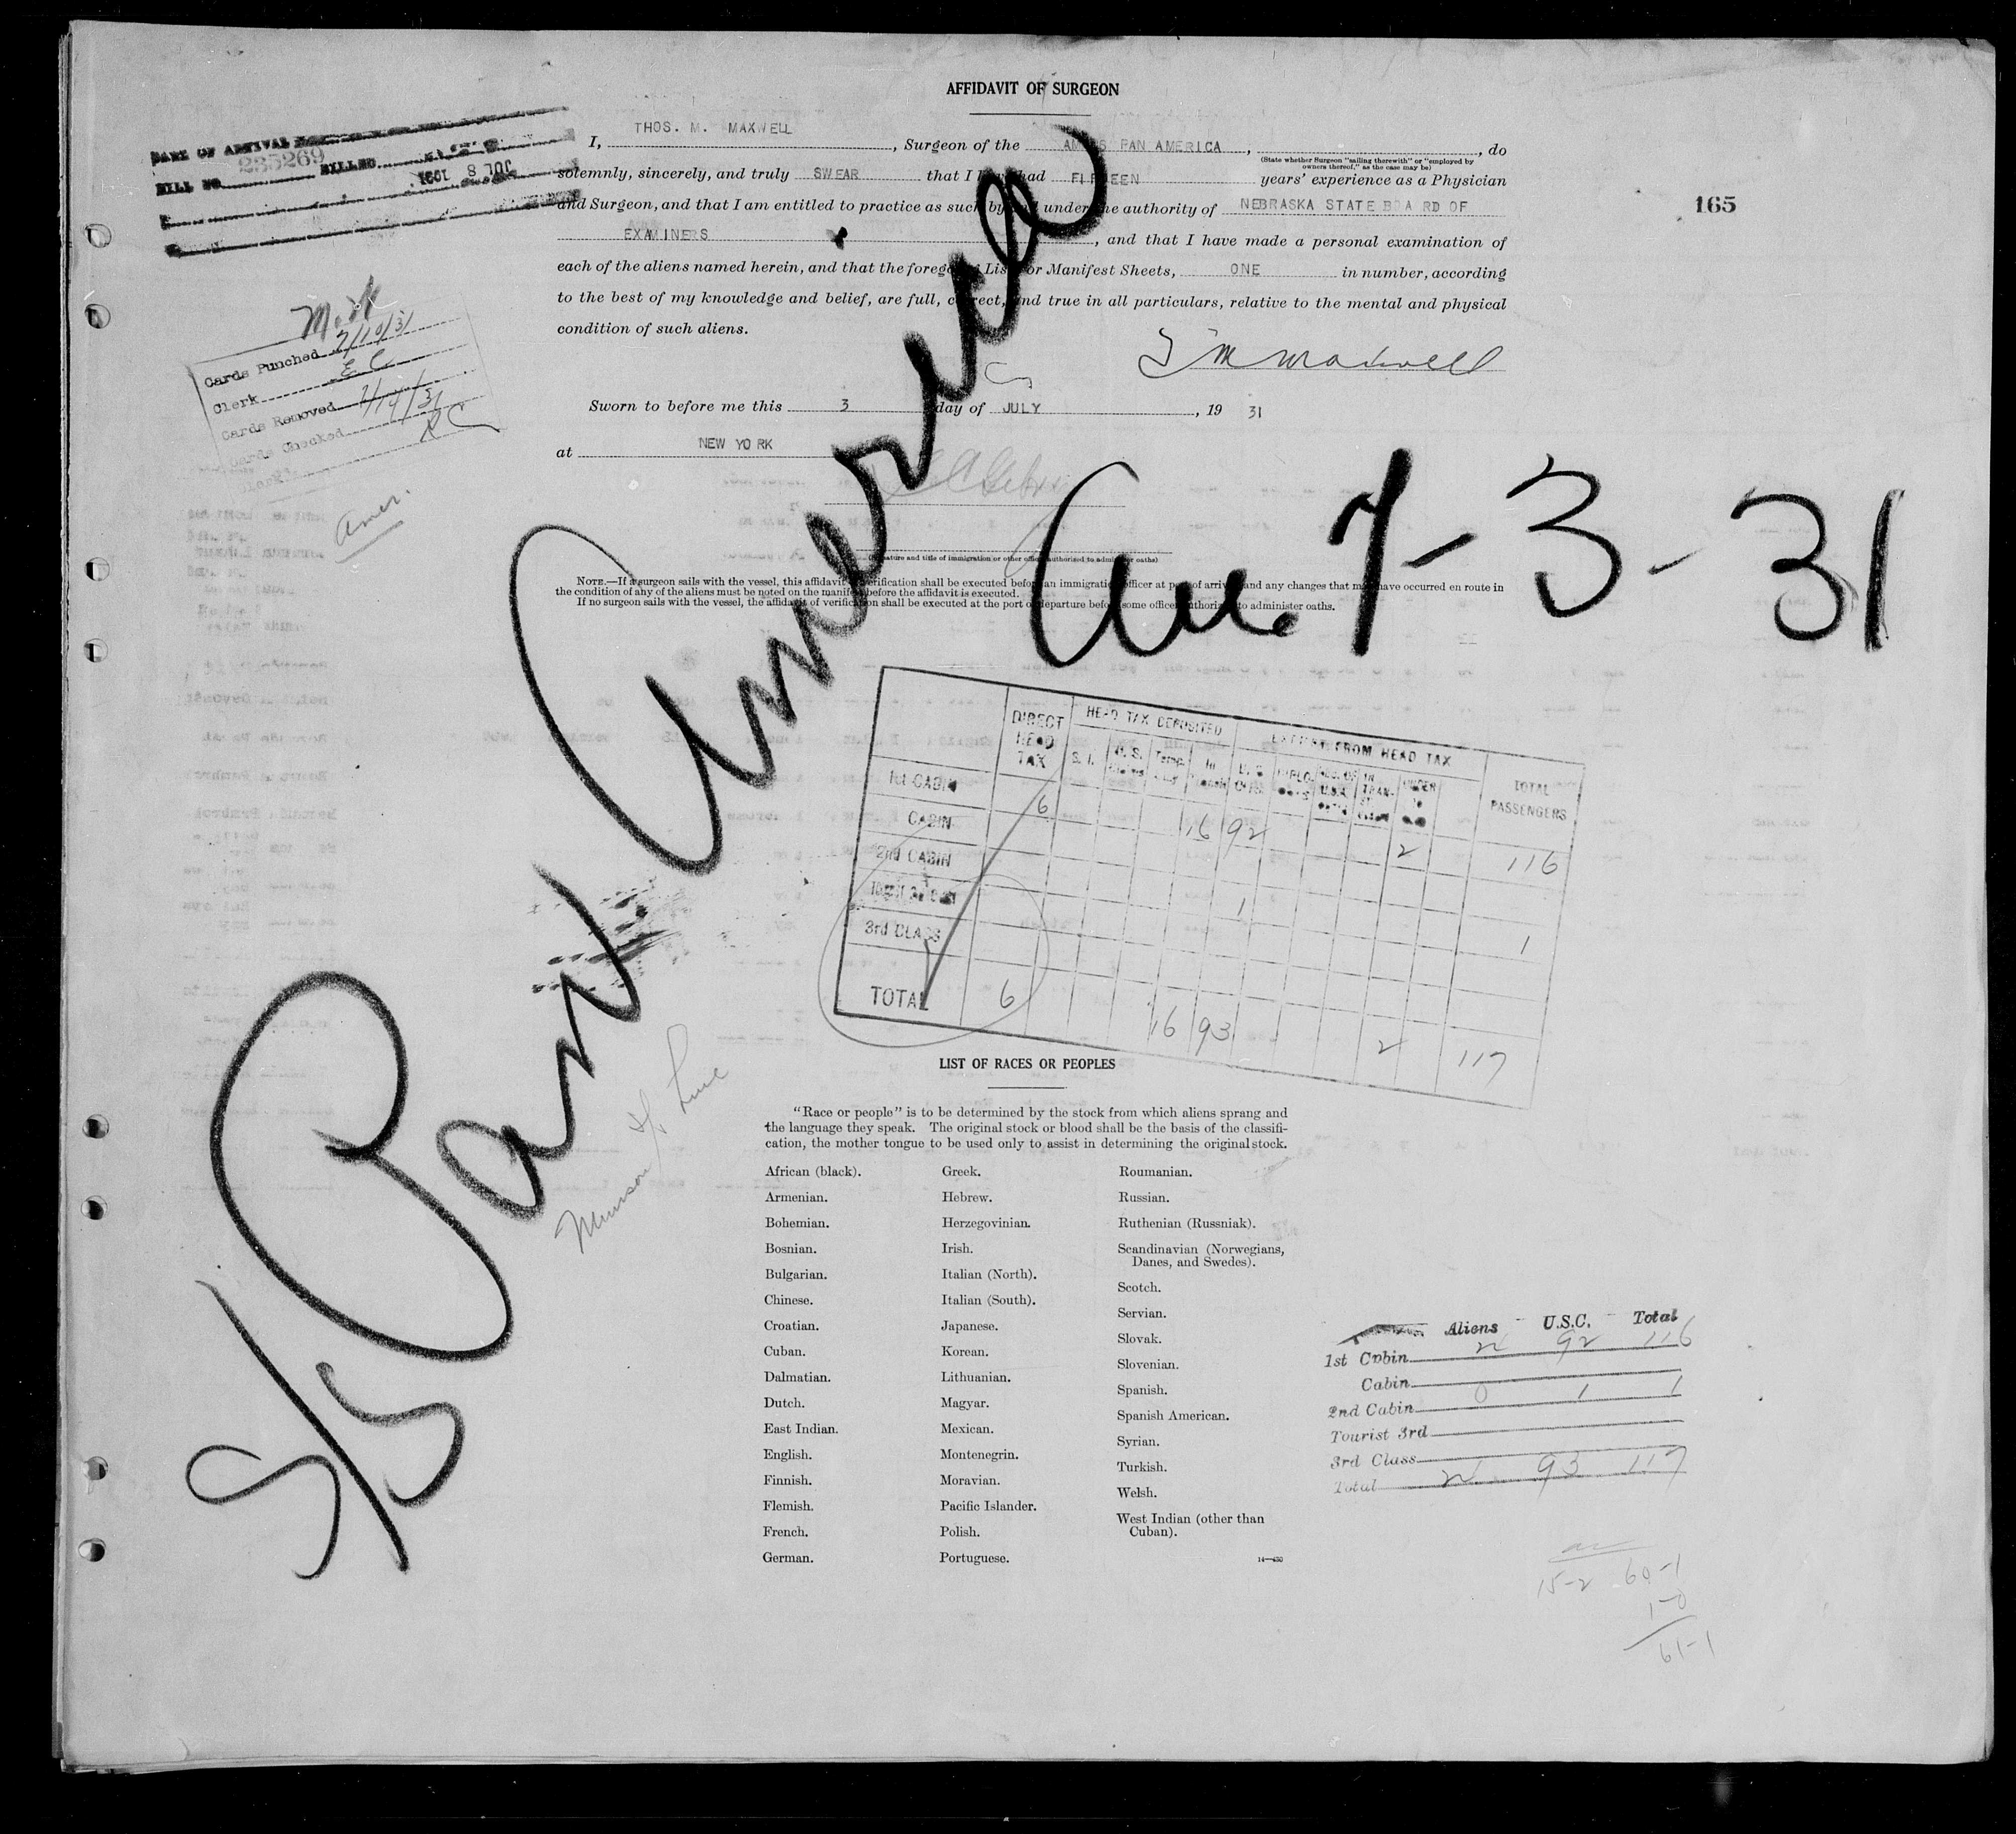 AFFIDAVIT OF SURGEON
I, THOS. M. MAXWELL, Surgeon of the PAN AMERICA, , do
(State whether Surgeon "sailing therewith" or "employed by owners thereof," as the case may be)
solemnly, sincerely, and truly SWEAR that I had years' experience as a Physician
and Surgeon, and that I am entitled to practice as such by under the authority of NEBRASKA STATE BOARD OF
EXAMINERS, and that I have made a personal examination of
each of the aliens named herein, and that the foregoing List or Manifest Sheets, ONE in number, according
to the best of my knowledge and belief, are full, correct, and true in all particulars, relative to the mental and physical
condition of such aliens.
T M Maxwell
Sworn to before me this 3 day of JULY, 19 31
at NEW YORK
(Signature and title of immigration or other officer authorized to administer oaths)
NOTE.—If a surgeon sails with the vessel, this affidavit verification shall be executed before an immigration officer at port of arrival and any changes that may have occurred en route in
the condition of any of the aliens must be noted on the manifest before the affidavit is executed.
If no surgeon sails with the vessel, the affidavit of verification shall be executed at the port of departure before some officer authorized to administer oaths.
165
DATE OF ARRIVAL
BILL NO. 235269 BILLED JUL 8 1931
Cards Punched 7/10/31
Clerk E C
Cards Removed 7/14/31
Cards Checked RC
Amer.
S/S Pan America
Arr. 7-3-31
Munson Line
DIRECT HEAD TAX HEAD TAX DEPOSITED EXEMPT FROM HEAD TAX TOTAL PASSENGERS
1st CABIN 6 16 92 2 116
CABIN
2nd CABIN 1 1
3rd CLASS
TOTAL 6 16 93 2 117
LIST OF RACES OR PEOPLES
"Race or people" is to be determined by the stock from which aliens sprang and
the language they speak. The original stock or blood shall be the basis of the classifi-
cation, the mother tongue to be used only to assist in determining the original stock.
African (black).
Armenian.
Bohemian.
Bosnian.
Bulgarian.
Chinese.
Croatian.
Cuban.
Dalmatian.
Dutch.
East Indian.
English.
Finnish.
Flemish.
French.
German.
Greek.
Hebrew.
Herzegovinian.
Irish.
Italian (North).
Italian (South).
Japanese.
Korean.
Lithuanian.
Magyar.
Mexican.
Montenegrin.
Moravian.
Pacific Islander.
Polish.
Portuguese.
Roumanian.
Russian.
Ruthenian (Russniak).
Scandinavian (Norwegians,
Danes, and Swedes).
Scotch.
Servian.
Slovak.
Slovenian.
Spanish.
Spanish American.
Syrian.
Turkish.
Welsh.
West Indian (other than
Cuban).
14—430
Aliens U.S.C. Total
1st Cabin 24 92 116
Cabin
2nd Cabin 0 1 1
Tourist 3rd
3rd Class
Total 24 93 117
15-2 60-1
1-0
61-1